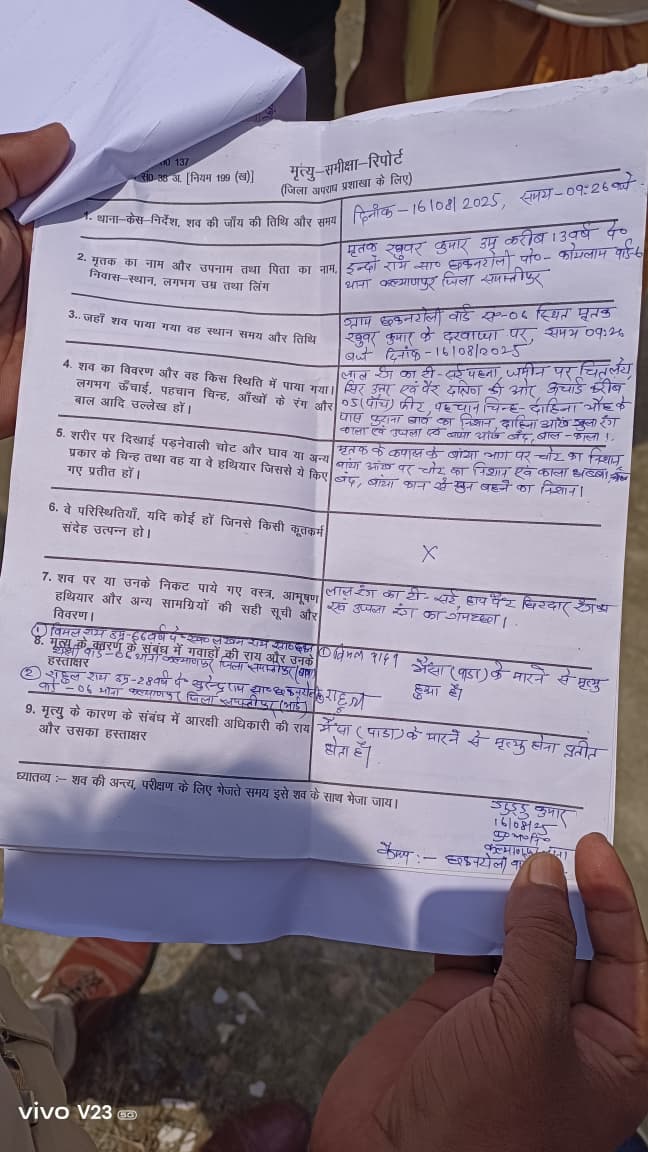 137
38 अ. [नियम 199 (ख)]
मृत्यु-समीक्षा-रिपोर्ट
(जिला अपराध प्रशाखा के लिए)
1. थाना-केस-निर्देश, शव की जाँच की तिथि और समय
दिनांक-16/08/2025, समय-09:26 बजे
2. मृतक का नाम और उपनाम तथा पिता का नाम,
निवास-स्थान, लगभग उम्र तथा लिंग
मृतक रघुवर कुमार उम्र करीब 13 वर्ष पे०
इन्दो राम सा० छकनटोली पो०- वार्ड-6
थाना कल्याणपुर जिला समस्तीपुर
3. जहाँ शव पाया गया वह स्थान समय और तिथि
ग्राम छकनटोली वार्ड सं०-06 स्थित मृतक
रघुवर कुमार के दरवाजा पर, समय 09:26
बजे दिनांक-16/08/2025
4. शव का विवरण और वह किस स्थिति में पाया गया।
लगभग ऊँचाई, पहचान चिन्ह, आँखों के रंग और
बाल आदि उल्लेख हों।
लाल रंग का टी-सर्ट पहना, जमीन पर चित लेटा,
सिर उत्तर एवं पैर दक्षिण की ओर ऊंचाई करीब
05 (पांच) फीट, पहचान चिन्ह- दाहिना के
पास पुराना का निशान, दाहिना आँख खुला रंग
काला एवं उजला एवं बाया आँख बंद, बाल-काला।
5. शरीर पर दिखाई पड़नेवाली चोट और घाव या अन्य
प्रकार के चिन्ह तथा वह या वे हथियार जिससे ये किए
गए प्रतीत हों।
मृतक के कपाल के बांया भाग पर चोट का निशान,
बांया आँख पर चोट का निशान एवं काला धब्बा
बंद, बांया कान से खुन बहने का निशान।
6. वे परिस्थितियाँ, यदि कोई हों जिनसे किसी कूतकर्म
संदेह उत्पन्न हो।
X
7. शव पर या उनके निकट पाये गए वस्त्र, आमूषण
हथियार और अन्य सामग्रियों की सही सूची और
विवरण।
लाल रंग का टी-सर्ट, हाफ पैंट
एवं उजला रंग का गमछा।
① विमल राय उम्र-66 वर्ष पे० लखन राय
वार्ड-06 थाना कल्याणपुर जिला समस्तीपुर
8. मृत्यु के कारण के संबंध में गवाहों की राय और उनके
हस्ताक्षर
② राहुल राम उम्र-28 वर्ष पे० सुरेन्द्र राम सा० छकनटोली
वार्ड-06 थाना कल्याणपुर जिला समस्तीपुर (भाई)
① विमल
② राहुल
भैंसा (पाडा) के मारने से मृत्यु
हुआ है।
9. मृत्यु के कारण के संबंध में आरक्षी अधिकारी की राय
और उसका हस्ताक्षर
भैंसा (पाडा) के मारने से मृत्यु होना प्रतीत
होता है।
ध्यातव्य :- शव की अन्त्य, परीक्षण के लिए भेजते समय इसे शव के साथ भेजा जाय।
गुड्डु कुमार
16/08/25
पु०अ०नि०
कल्याणपुर थाना
कैम्प :- छकनटोली
vivo V23 5G